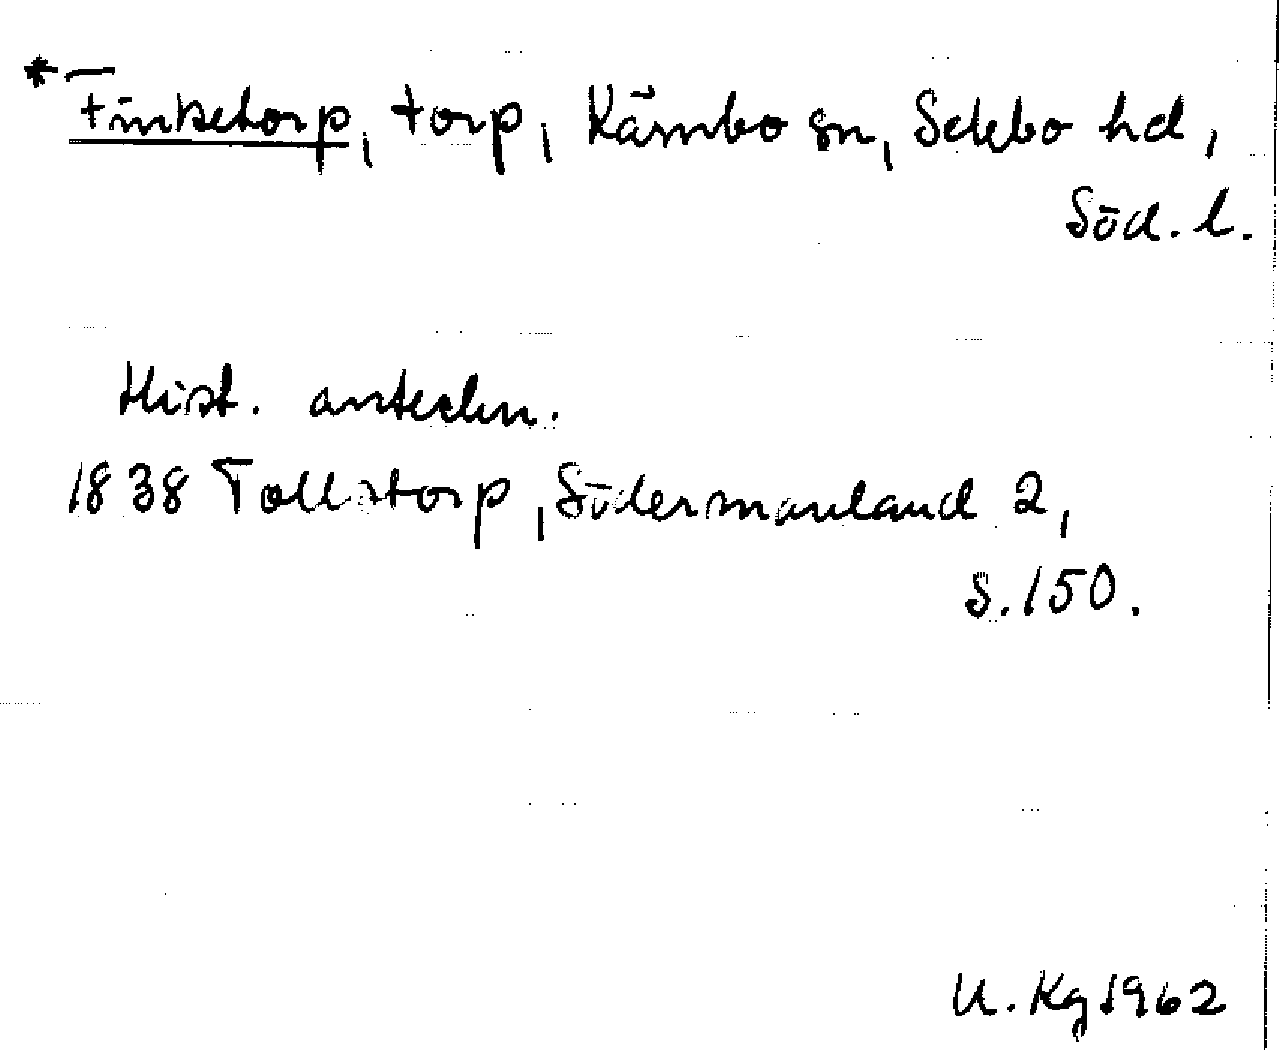 *Finketorp, torp, Kärnbo sn, Selebo hd,
Söd. l.
Hist. anteckn.
1838 Tollstorp, Södermanland 2,
s. 150.
U. Kg 1962